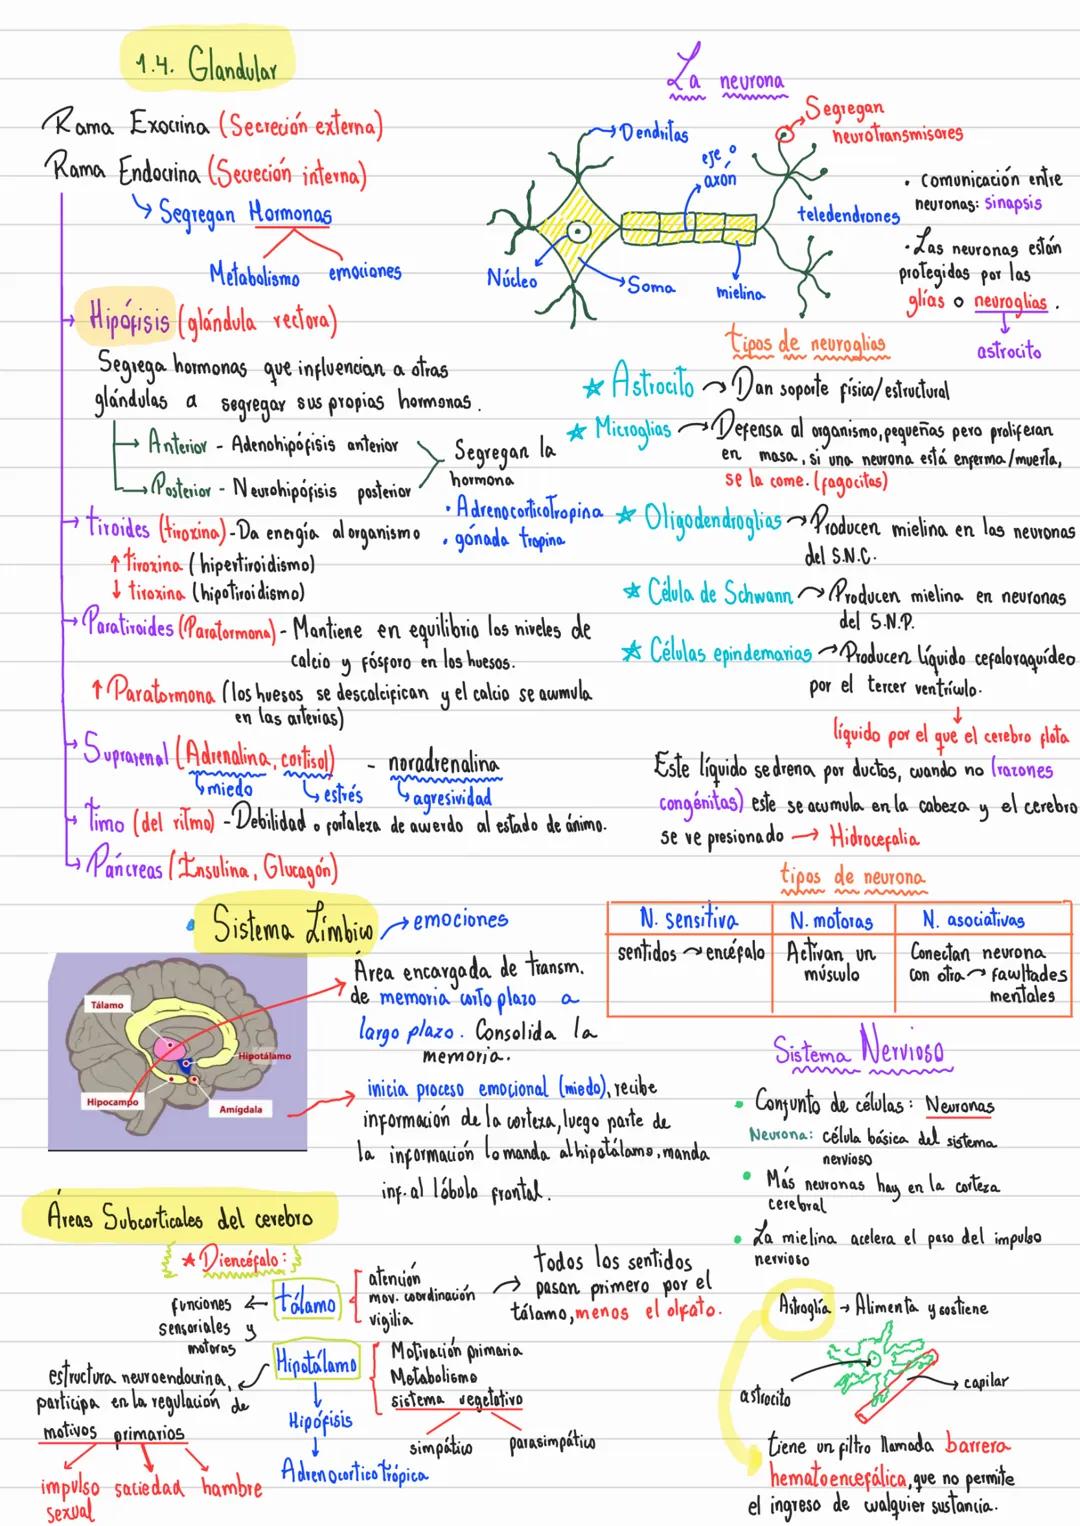 1.4. Glandular
Rama Exocrina (Secreción externa)
Rama Endocrina (Secreción interna)
Segregan Hormonas
Metabolismo emociones
Hipófisis (glándula rectora)
Segrega hormonas que influencian a otras
glándulas a segregar sus propias hormonas.
Anterior - Adenohipófisis anterior
Posterior - Neurohipófisis posterior
Segregan la
hormona
• Adrenocorticotropina
• gónada tropina
tiroides (tiroxina) - Da energía al organismo
↑ tiroxina (hipertiroidismo)
↓ tiroxina (hipotiroidismo)
Paratiroides (Paratormona) - Mantiene en equilibrio los niveles de
calcio y fósforo en los huesos.
↑ Paratormona (los huesos se descalcifican y el calcio se acumula
en las arterias)
Suprarenal (Adrenalina, cortisol) - noradrenalina
miedo estrés agresividad
Timo (del ritmo) - Debilidad o fortaleza de acuerdo al estado de ánimo.
Páncreas (Insulina, Glucagón)
La neurona
Dendritas
eje o
axón
Segregan
neurotransmisores
teledendrones
Núcleo
Soma
mielina
• Comunicación entre
neuronas: sinapsis
• Las neuronas están
protegidas por las
glías o neuroglias.
astrocito
tipos de neuroglias
Astrocito → Dan soporte físico/estructural
Microglias → Defensa al organismo, pequeñas pero proliferan
en masa, si una neurona está enferma/muerta,
se la come. (fagocitas)
Oligodendroglias → Producen mielina en las neuronas
del S.N.C.
Célula de Schwann → Producen mielina en neuronas
del S.N.P.
Células epindemarias → Producen líquido cefaloraquídeo
por el tercer ventrículo.
líquido por el que el cerebro flota
Este líquido se drena por ductos, cuando no (razones
congénitas) este se acumula en la cabeza y el cerebro
se ve presionado → Hidrocefalia
tipos de neurona
N. sensitiva N. motoras N. asociativas
sentidos → encéfalo Activan un Conectan neurona
músculo con otra → facultades
mentales
Sistema Límbico → emociones
Tálamo
Hipotálamo
Hipocampo
Amígdala
Área encargada de transm.
de memoria corto plazo a
largo plazo. Consolida la
memoria.
inicia proceso emocional (miedo), recibe
información de la corteza, luego parte de
la información lo manda al hipotálamo, manda
inf. al lóbulo frontal.
Sistema Nervioso
• Conjunto de células: Neuronas
Neurona: célula básica del sistema
nervioso
• Más neuronas hay en la corteza
cerebral
• La mielina acelera el paso del impulso
nervioso
Áreas Subcorticales del cerebro
Diencéfalo:
funciones
sensoriales y
motoras
tálamo
atención
mov. coordinación
vigilia
todos los sentidos
pasan primero por el
tálamo, menos el olfato.
Hipotálamo
Motivación primaria
Metabolismo
sistema vegetativo
simpático parasimpático
estructura neuroendocrina,
participa en la regulación de
motivos primarios
impulso saciedad hambre
sexual
Hipófisis
Adrenocorticotrópica
Astroglía → Alimenta y sostiene
astrocito
capilar
tiene un filtro llamada barrera
hematoencefálica, que no permite
el ingreso de cualquier sustancia.